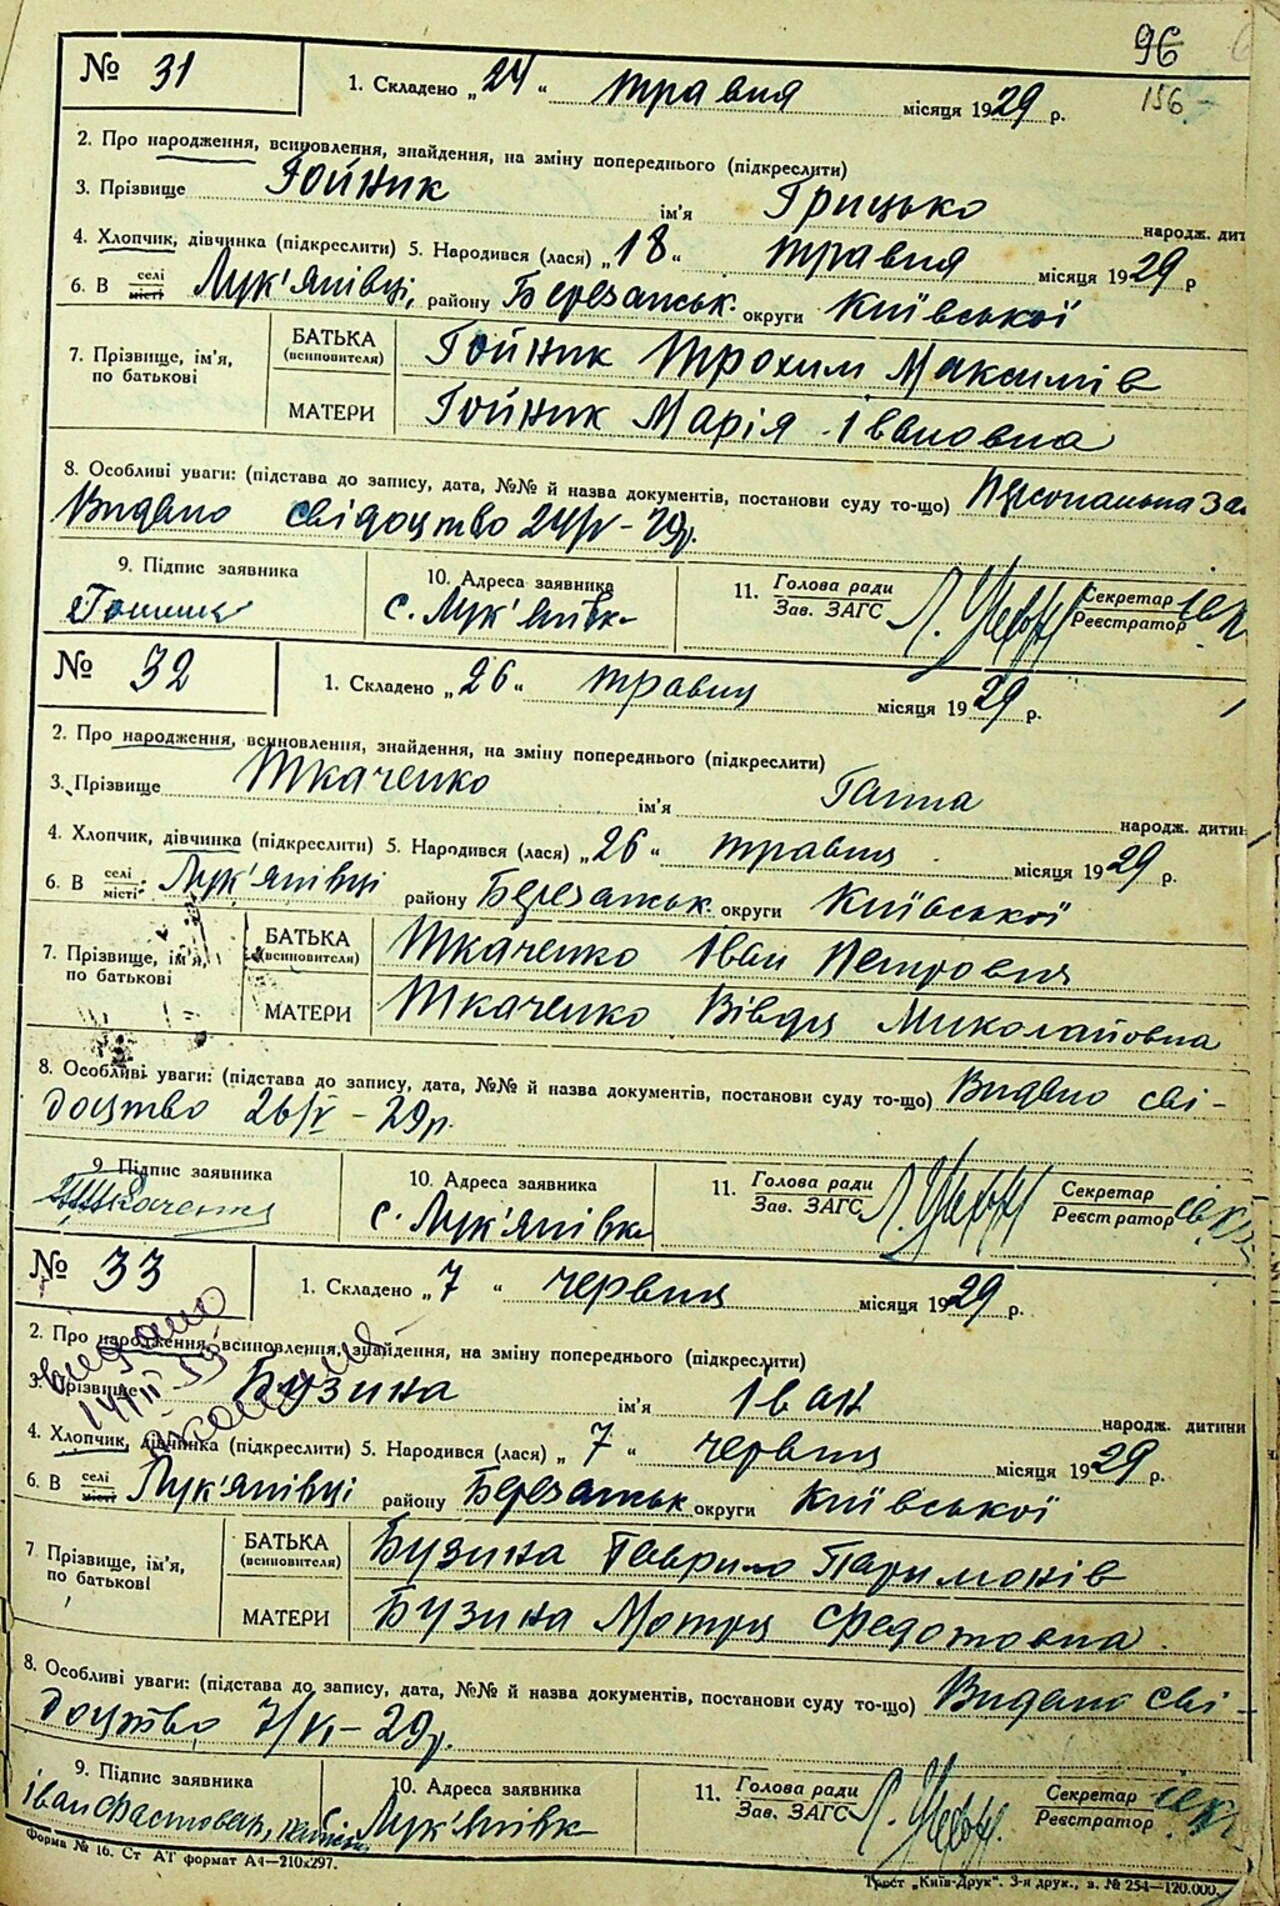 96
156
№ 31
1. Складено „24“ травня місяця 1929 р.
2. Про народження, всиновлення, знайдення, на зміну попереднього (підкреслити)
3. Прізвище Гойник ім'я Грицько народж. дит
4. Хлопчик, дівчинка (підкреслити) 5. Народився (лася) „18“ травня місяця 1929 р
6. В селі місті Лук'янівці, району Березанськ. округи Київської
7. Прізвище, ім'я, по батькові
БАТЬКА (всиновителя) Гойник Трохим Максимів
МАТЕРИ Гойник Марія Івановна
8. Особливі уваги: (підстава до запису, дата, №№ й назва документів, постанови суду то-що) Персональна за
Видано свідоцтво 24/V – 29р.
9. Підпис заявника
10. Адреса заявника с. Лук'янівка
11. Голова ради Зав. ЗАГС Секретар Реєстратор
№ 32
1. Складено „26“ травня місяця 1929 р.
2. Про народження, всиновлення, знайдення, на зміну попереднього (підкреслити)
3. Прізвище Ткаченко ім'я Ганна народж. дитин
4. Хлопчик, дівчинка (підкреслити) 5. Народився (лася) „26“ травня місяця 1929 р.
6. В селі місті Лук'янівці району Березанськ. округи Київської
7. Прізвище, ім'я, по батькові
БАТЬКА (всиновителя) Ткаченко Іван Петровия
МАТЕРИ Ткаченко Вівдя Миколайовна
8. Особливі уваги: (підстава до запису, дата, №№ й назва документів, постанови суду то-що) Видано сві-
доцтво 26/V – 29р.
9. Підпис заявника
10. Адреса заявника с. Лук'янівка
11. Голова ради Зав. ЗАГС Секретар Реєстратор
№ 33
1. Складено „7“ червня місяця 1929 р.
2. Про народження, всиновлення, знайдення, на зміну попереднього (підкреслити)
видано
3. Прізвище Бузина ім'я Іван народж. дитини
4. Хлопчик, дівчинка (підкреслити) 5. Народився (лася) „7“ червня місяця 1929 р.
6. В селі місті Лук'янівці району Березанськ округи Київської
7 Прізвище, ім'я, по батькові
БАТЬКА (всиновителя) Бузина Гаврило Паримонів
МАТЕРИ Бузина Мотря Федотовна
8. Особливі уваги: (підстава до запису, дата, №№ й назва документів, постанови суду то-що) Видано сві-
доцтво 7/VI – 29р.
9. Підпис заявника Іван
10. Адреса заявника с. Лук'янівка
11. Голова ради Зав. ЗАГС Секретар Реєстратор
Форма № 16. Ст АТ формат А4—210x297.
Трест „Київ-Друк“. 3-я друк., з. № 254—120.000.